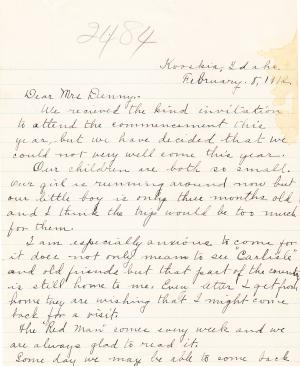 2484
Kooskia, Idaho.
February. 8, 1912.
Dear Mrs Denny:-
We recieved the kind invitation
to attend the commencement this
year, but we have decided that we
could not very well come this year.
Our children are both so small.
Our girl is running around now but
our little boy is only three months old,
and I think the trip would be too much
for them.
I am especially anxious to come for
it does not only mean to see Carlisle
and old friends but that part of the country
is still home to me. Every letter I get from
home they are wishing that I might come
back for a visit.
The "Red Man" comes every week and we
are always glad to read it.
Some day we may be able to come back